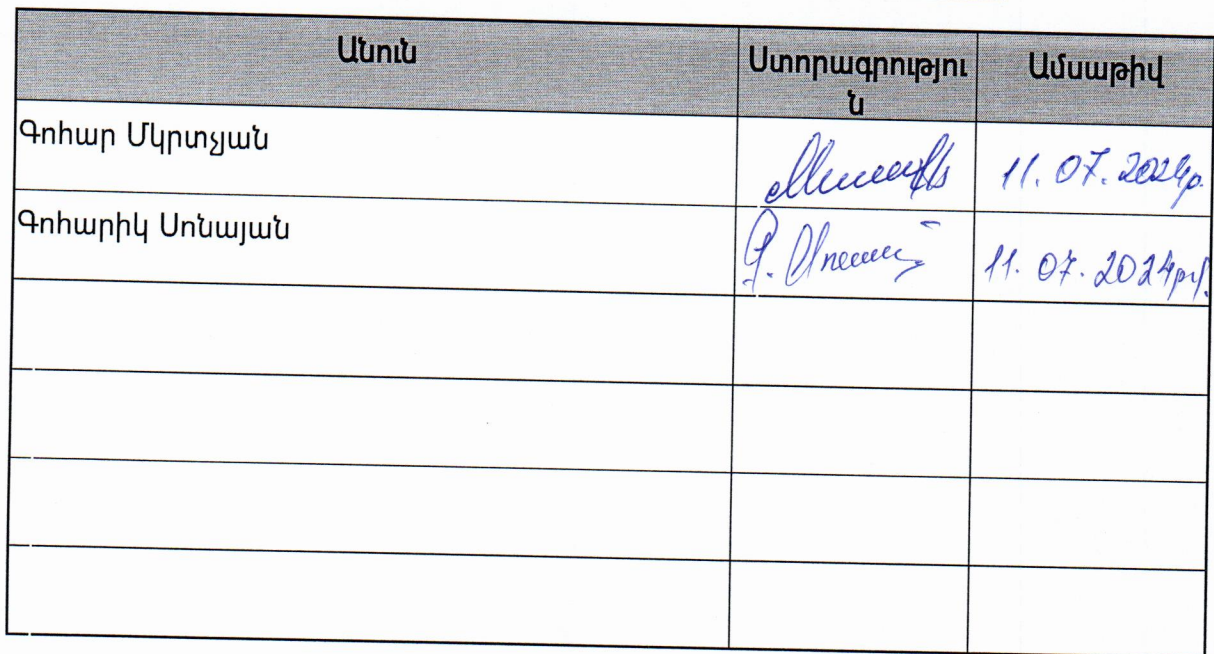 Անուն Ստորագրություն Ամսաթիվ
Գոհար Մկրտչյան 11.07.2024թ.
Գոհարիկ Սոնայան 11.07.2024թ.